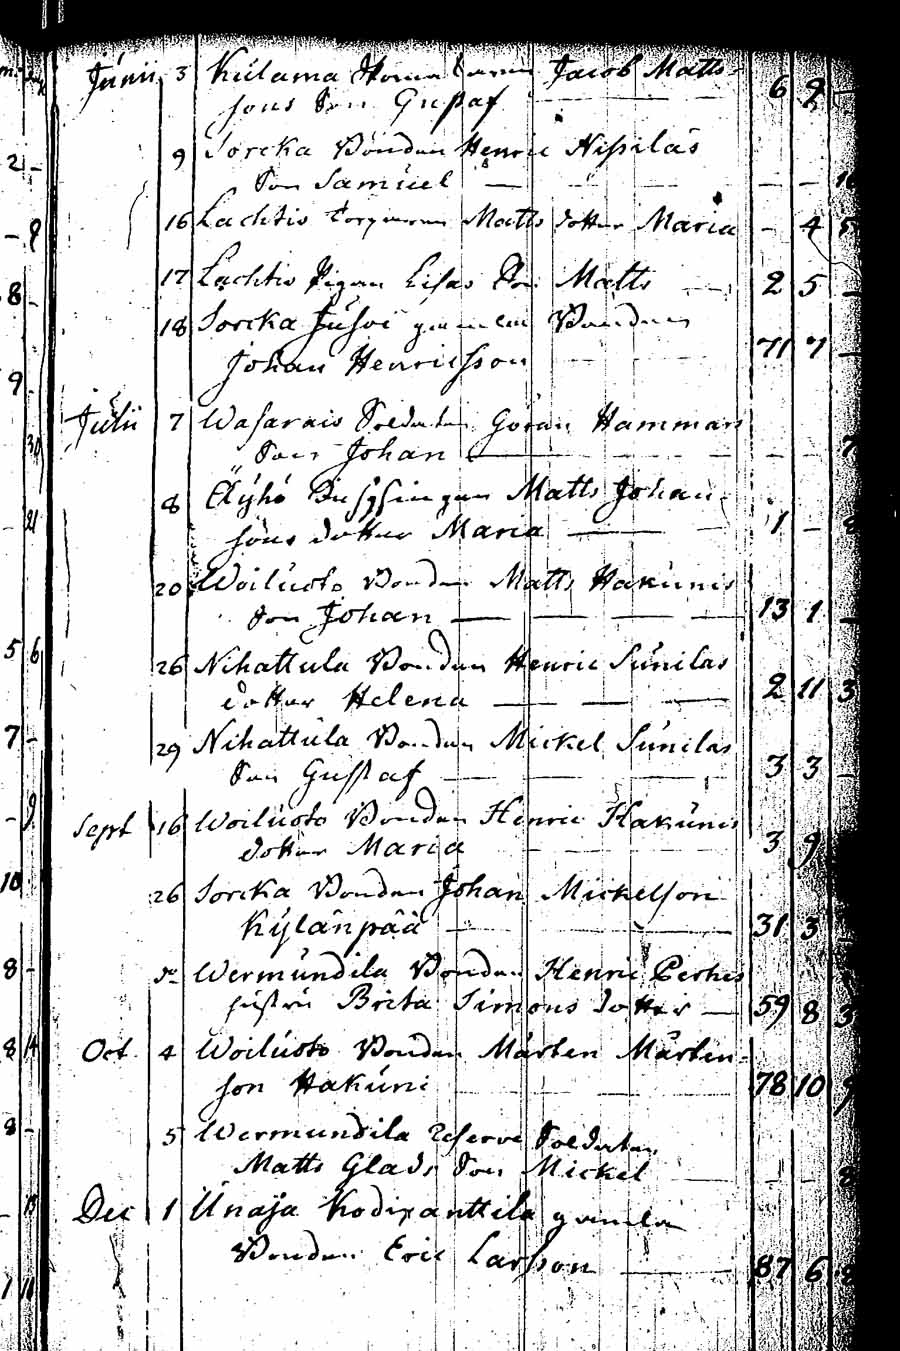 Junii 3 Kulama Jacob Matts-
sons Son Gustaf 6 9
9 Sorcka Bonden Henric Nissilas
Son Samuel — — —
16 Lachtis Matts dotter Maria - 4
17 Lachtis Pigan Lisas Son Matts — 2 5
18 Sorcka Jusoi gamla Bonden
Johan Henricsson 71 7
Julii 7 Wasarais Soldaten Göran Hammars
Son Johan — — —
8 Äyhö Matts Johan-
sons dotter Maria — 1 -
20 Woiluoto Bonden Matts Hakunis
Son Johan — 13 1
26 Nihattula Bonden Henric Sunilas
dotter Helena — 2 11 3
29 Nihattula Bonden Mickel Sunilas
Son Gustaf — 3 3
Sept 16 Woiluoto Bonden Henric Hakunis
dotter Maria 3 9
26 Sorcka Bonden Johan Mickelson
Kylänpää — 31 3
Wermundila Bonden Henric Perkes
hustru Brita Simons dotter — 59 8 3
Oct 4 Woiluoto Bonden Mårten Mårten-
son Hakuni 78 10
5 Wermundila Reserve Soldaten
Matts Glads Son Mickel
Dec 1 Unaja Kodixanttila gamla
Bonden Eric Larsson — 87 6